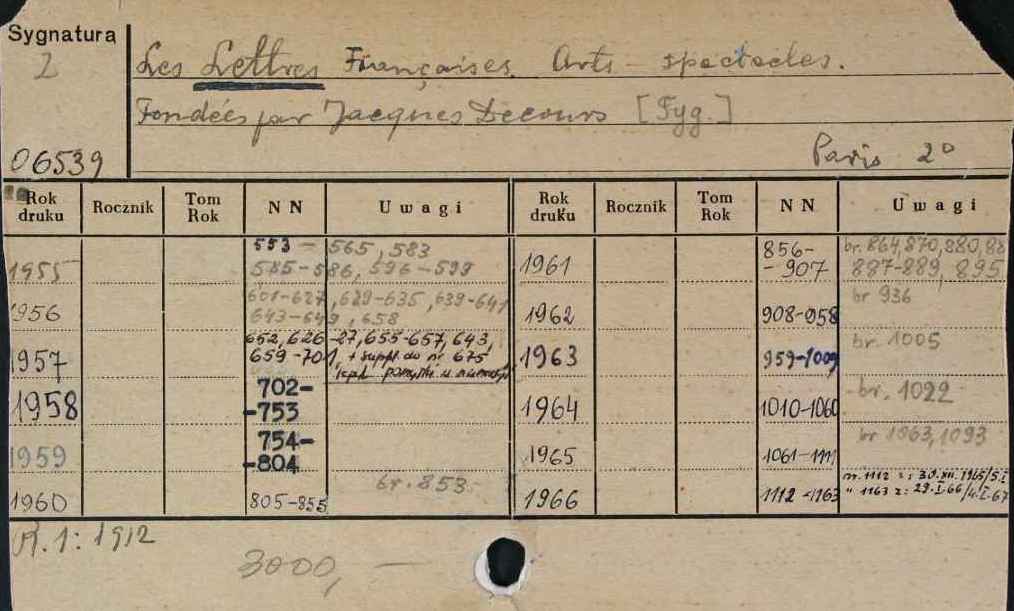 Sygnatura
2
06539
Les Lettres Françaises. Arts - spectacles.
Fondées par Jacques Decours [Tyg.]
Paris 2°
Rok druku Rocznik Tom Rok NN Uwagi Rok druku Rocznik Tom Rok NN Uwagi
1955 553 - 565, 583
585-586, 596-599
1956 601-627, 629-635, 639-641
643-649, 658
1957 652, 626-27, 655-657, 643,
659-701, + suppl. do nr. 675
1958 702-
-753
1959 754-
-804
1960 805-855 br. 853
1961 856-
-907 br. 864, 870, 880, 88
887-889, 895
1962 908-958 br 936
1963 959-1009 br. 1005
1964 1010-1060 br. 1022
1965 1061-1111 br 1063, 1093
1966 1112-1163 nr. 1112 z: 30.XII.1965/5.I
" 1163 z: 29.I.66/4.I.67
R. 1: 1912
3000, -